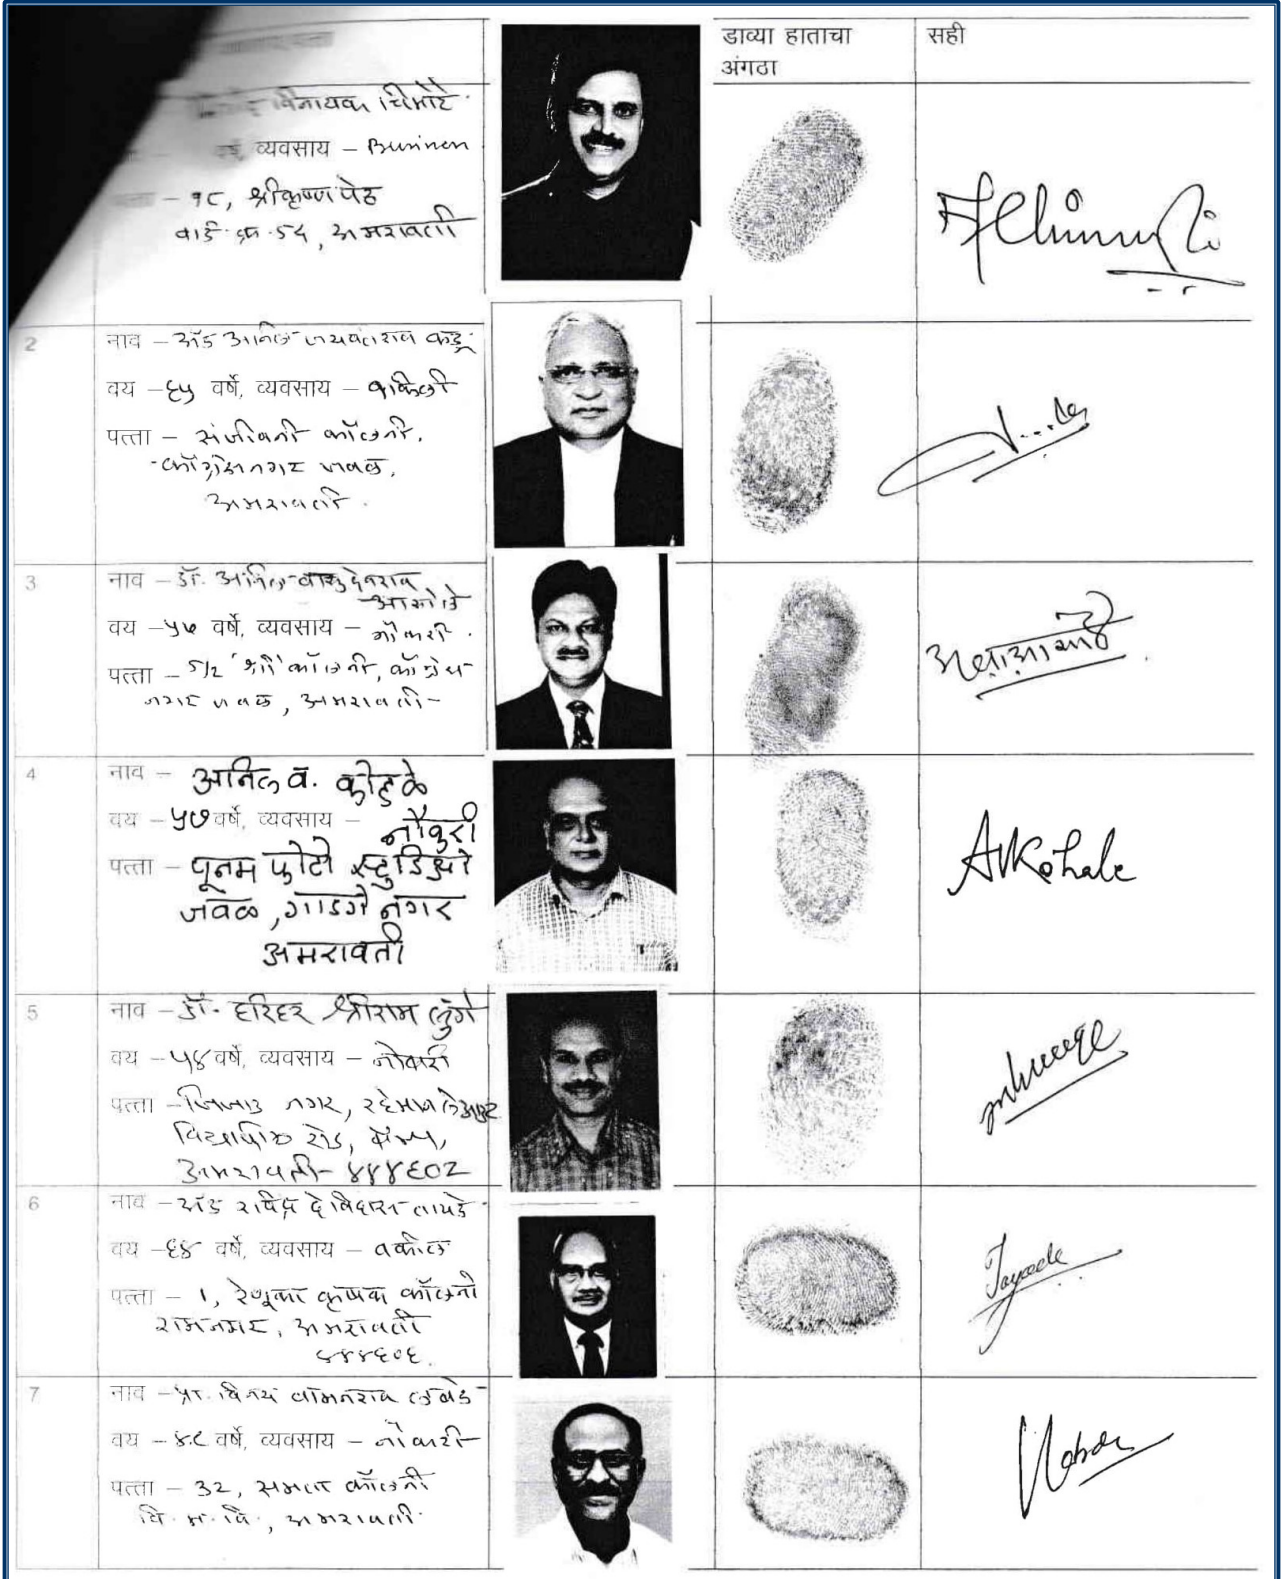 डाव्या हाताचा
अंगठा
सही
विनायक चिमोटे
व्यवसाय – Business
– १८, श्रीकृष्ण पेठ
वार्ड क्र. ५४, अमरावती
2
नाव – अॅड अनिल जयवंतराव कडू
वय – ६५ वर्षे, व्यवसाय – वकिली
पत्ता – संजीवनी कॉलनी,
काँग्रेसनगर जवळ,
अमरावती.
3
नाव – डॉ. अनिल वासुदेवराव
आसोले
वय – ५७ वर्षे, व्यवसाय – नौकरी.
पत्ता – 5/2 श्री कॉलनी, काँग्रेस
नगर जवळ, अमरावती
4
नाव – अनिल व. कोहळे
वय – ५७ वर्षे, व्यवसाय –
नौकुरी
पत्ता – पूनम फोटो स्टुडिओ
जवळ, गाडगे नगर
अमरावती
AVKohale
5
नाव – डॉ. हरिहर श्रीराम लुंगे
वय – ५४ वर्षे, व्यवसाय – नोकरी
पत्ता – जिजाउ नगर, रहेमान लेआउट
विद्यापीठ रोड, कॅम्प,
अमरावती – ४४४६०२
6
नाव – अॅड रविंद्र देविदास तायडे
वय – ६४ वर्षे, व्यवसाय – वकील
पत्ता – 1, रेणूका कृषक कॉलनी
रामनगर, अमरावती
४४४६०६.
Tayade
7
नाव – प्रा. विनय वामनराव लबडे
वय – ४८ वर्षे, व्यवसाय – नोकरी
पत्ता – ३२, समता कॉलनी
वि. म. वि., अमरावती